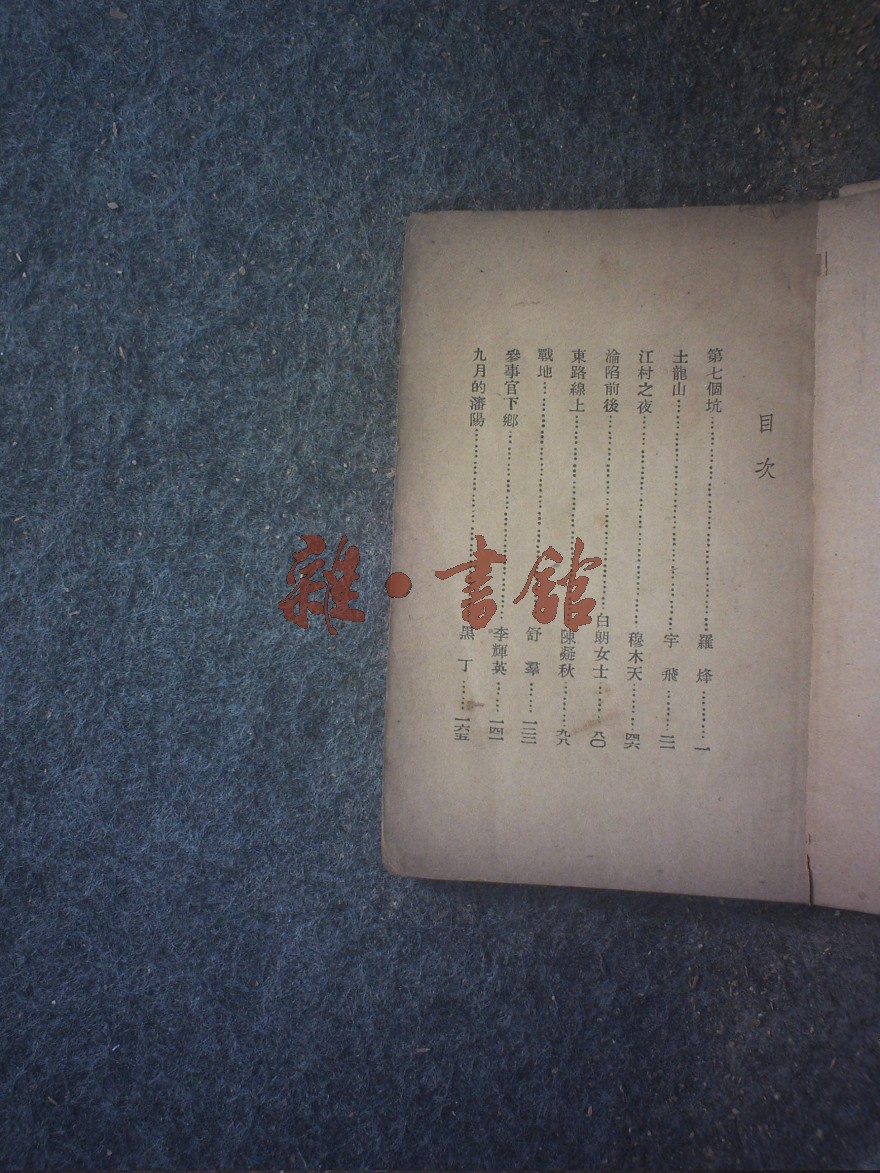 目次
第七個坑…………羅烽…………一
土龍山…………宇飛…………二一
江村之夜…………穆木天…………四六
淪陷前後…………白朗女士…………八〇
東路線上…………陳凝秋…………九八
戰地…………舒羣…………一二三
參事官下鄉…………李輝英…………一四一
九月的瀋陽…………黑丁…………一六五
雜·書館